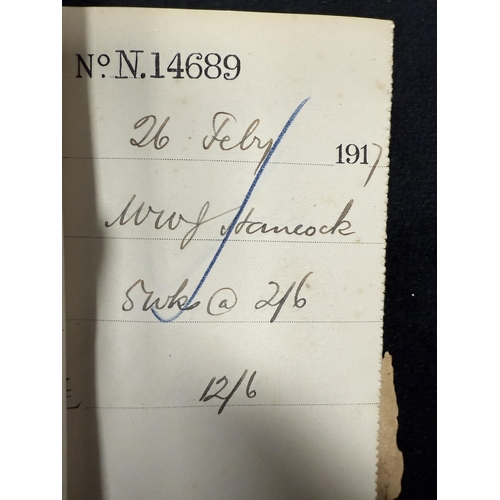 No N.14689
26 Feby 1917
WWJ Hancock
5wks @ 2/6
£ 12/6